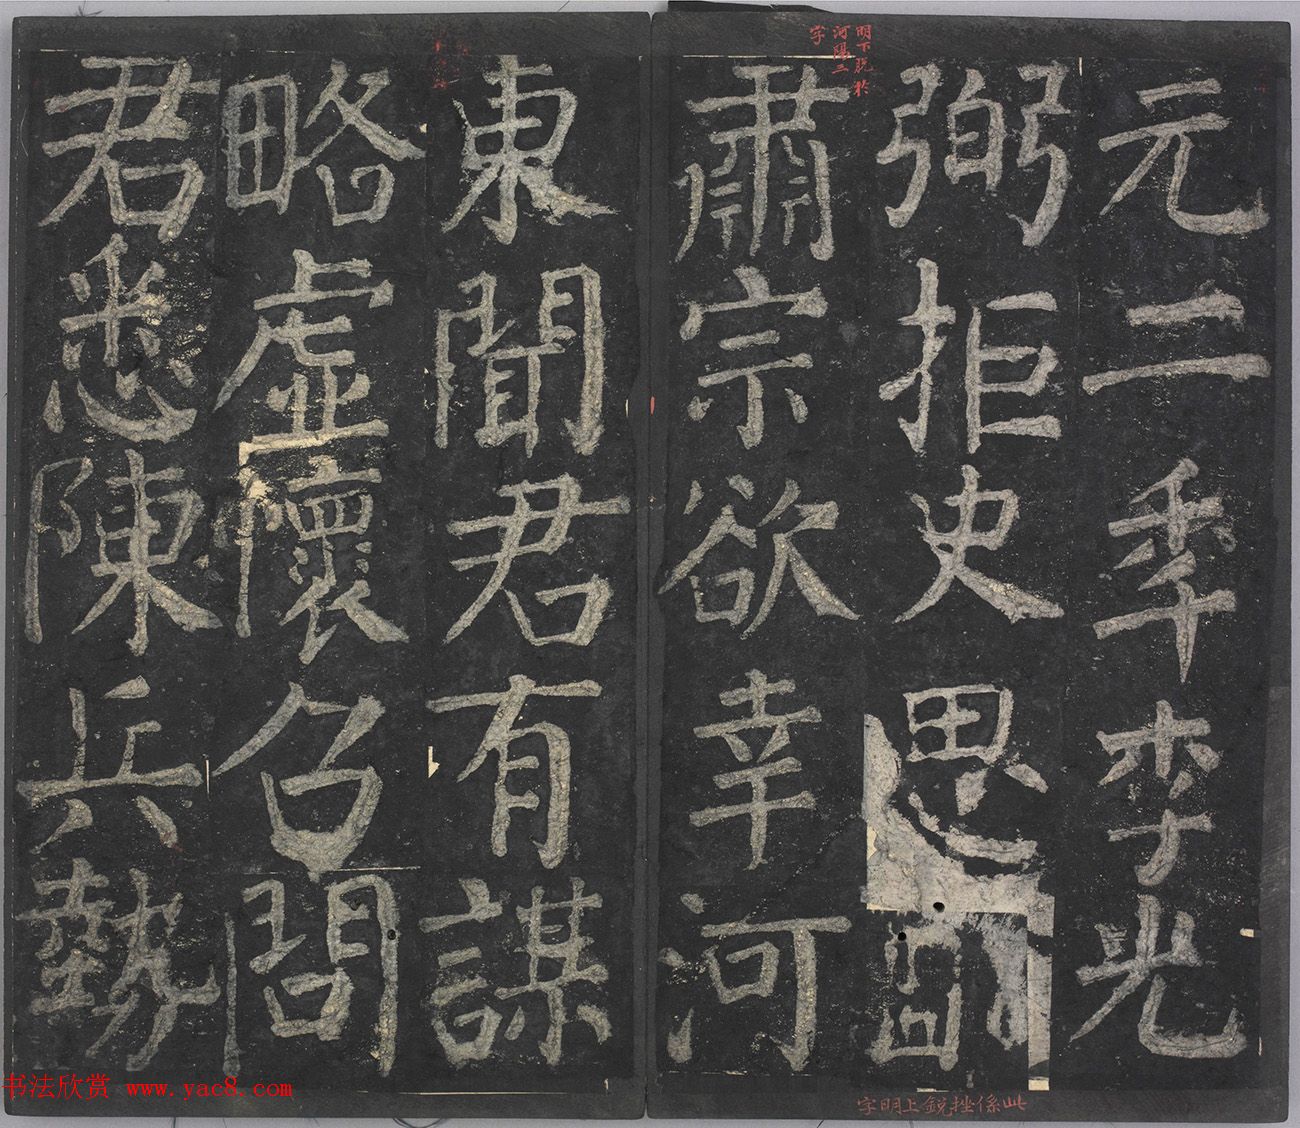 元二秊李光
弼拒史思明
肅宗欲幸河
東聞君有謀
略虛懷召問
君悉陳兵勢
明下脫於
河陽二
字
此係挫銳上明字
书法欣赏 www.yac8.com